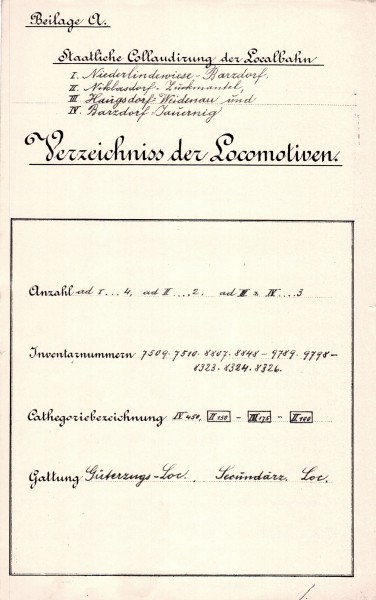 Beilage A.
Staatliche Collaudirung der Localbahn
I. Niederlindewiese-Barzdorf,
II. Niklasdorf-Zuckmantel,
III. Haugsdorf-Weidenau und
IV. Barzdorf-Jauernig
Verzeichniss der Locomotiven.
Anzahl ad I ... 4, ad II .... 2. ad III & IV .... 3
Inventarnummern 7509. 7510. 8807. 8848 - 9789. 9798 -
8323. 8324. 8326.
Cathegoriebezeichnung IV 450, II 150 - III 175 - II 100
Gattung Güterzugs-Loc., Secundärz. Loc.